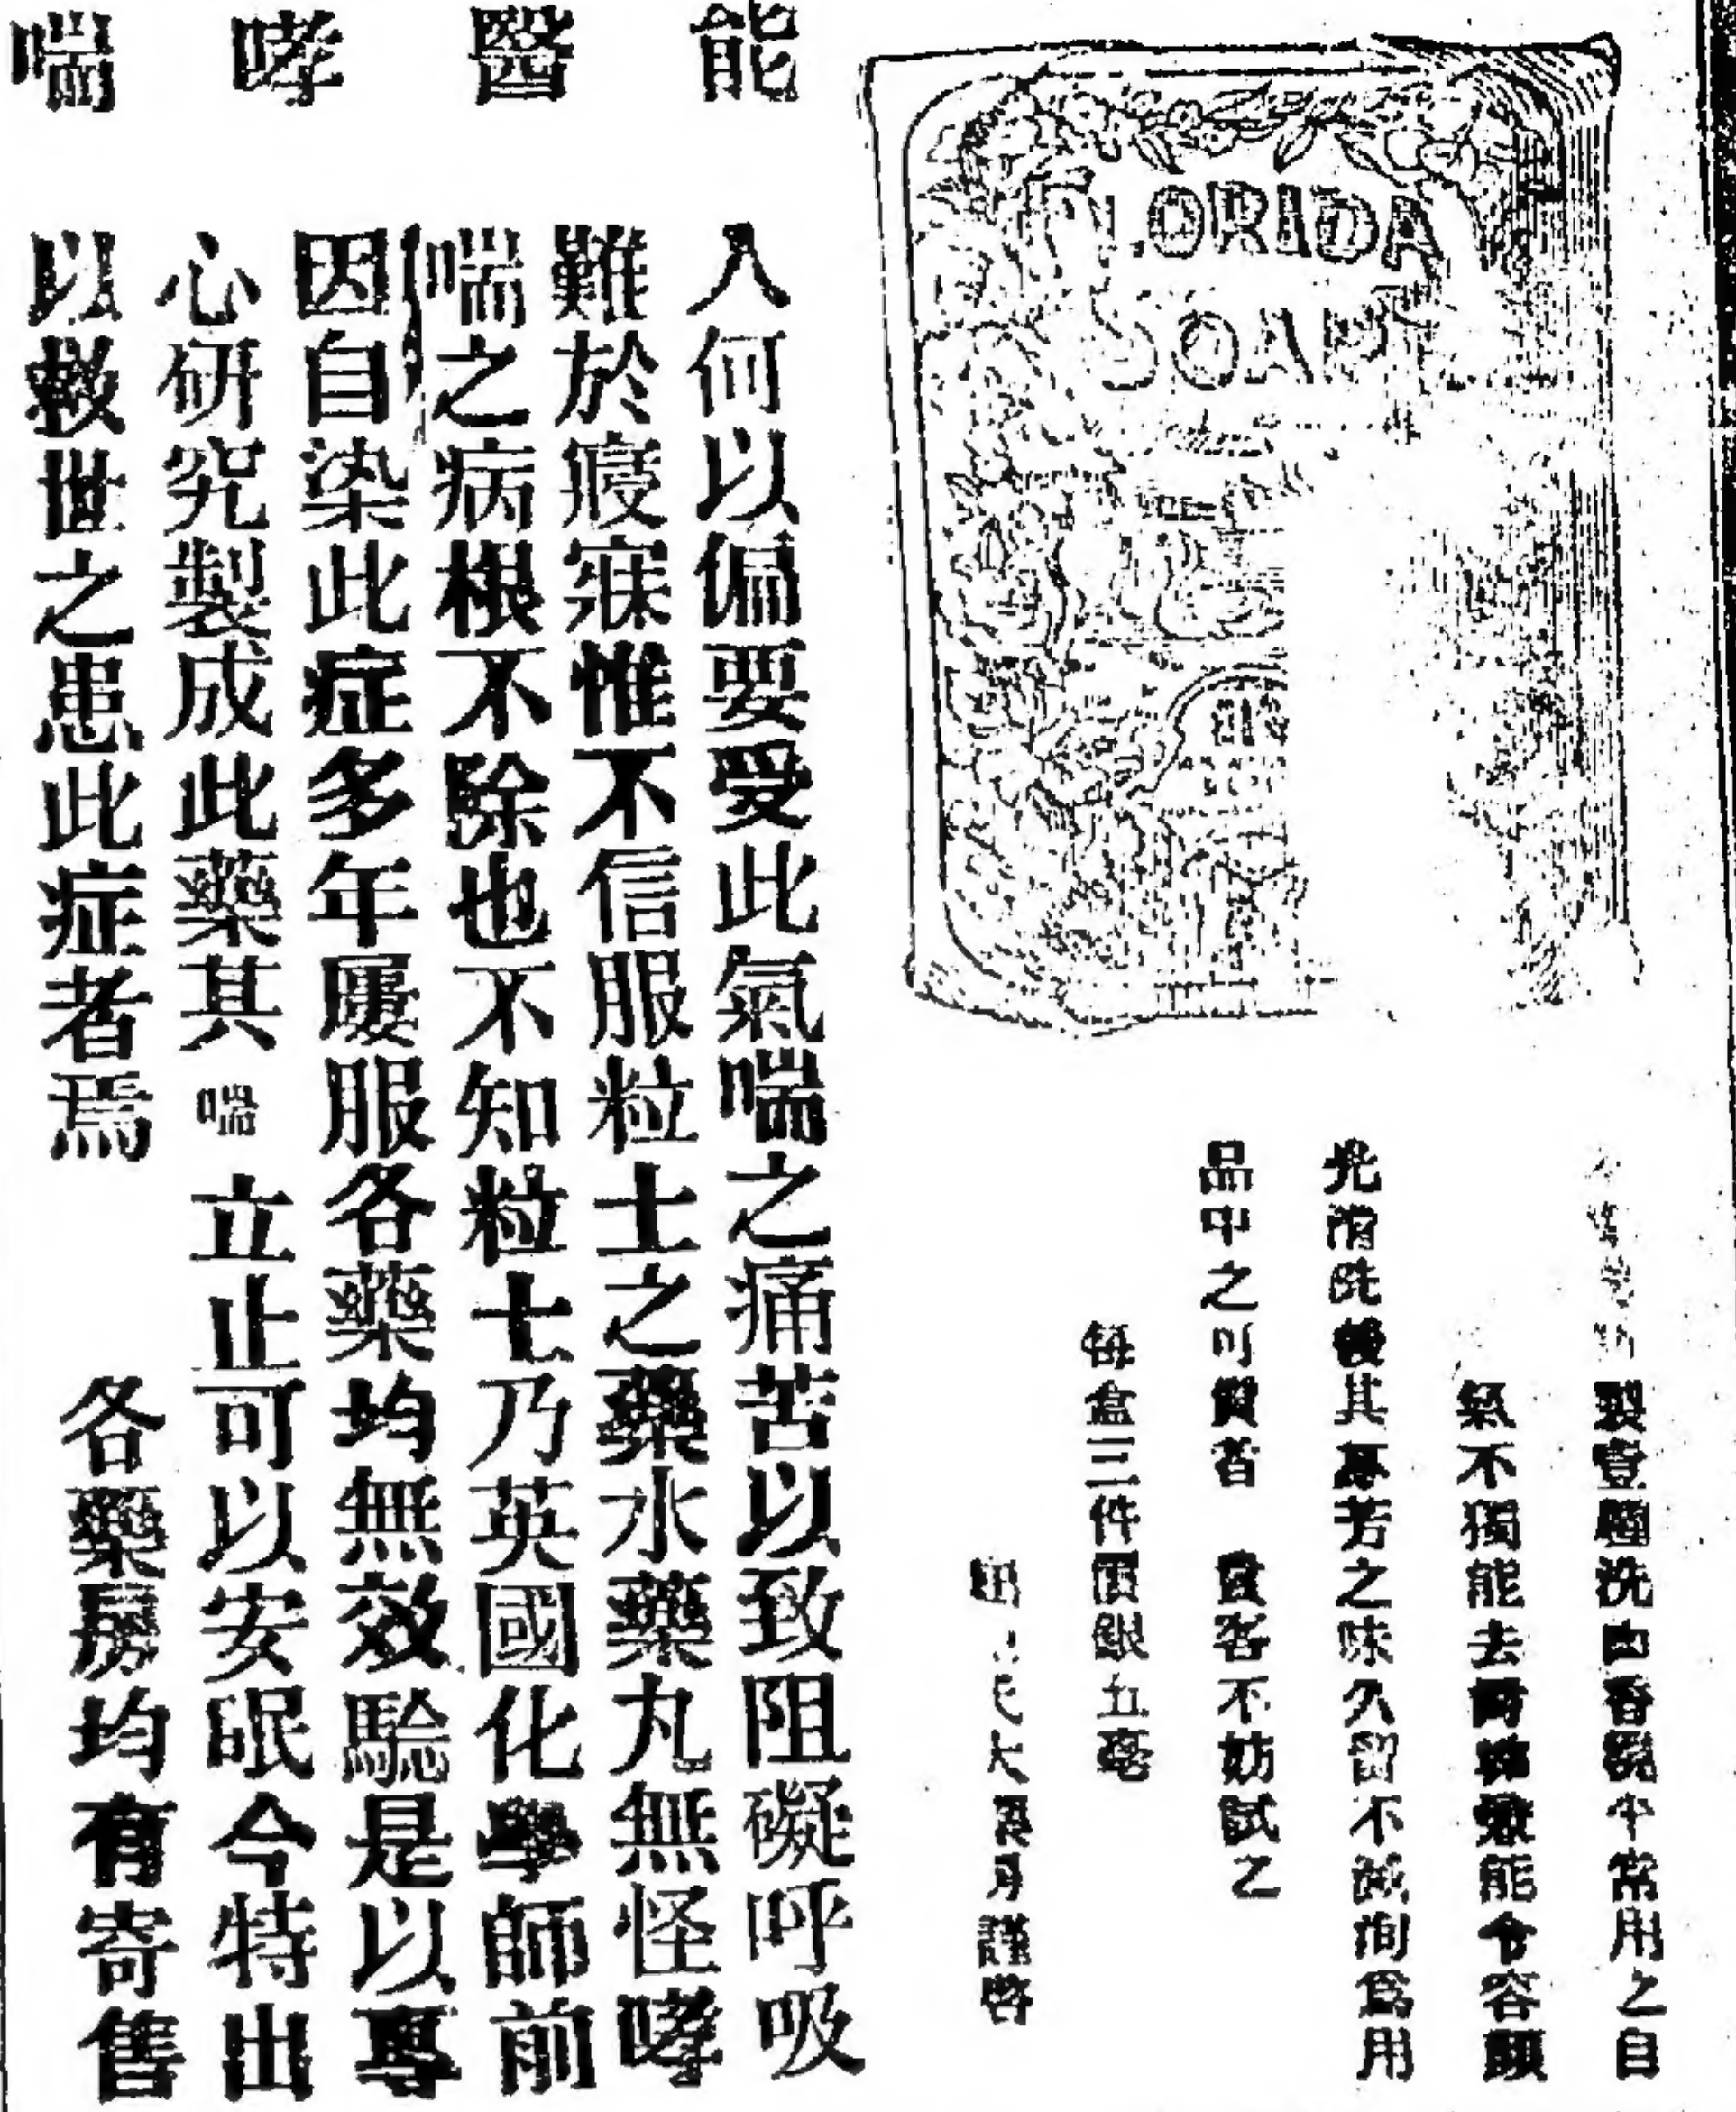 FLORIDA
SOAP
製壹種洗香常用之自
氣不獨能去能令容顏
光滑洗後其芳之味久留不散洵爲用
品中之可貴者 貴客不妨試之
每盒三件價銀五毫
氏大藥房謹啓
能醫哮喘
人何以偏要受此氣喘之痛苦以致阻礙呼吸
難於寢寐惟不信服粒士之藥水藥丸無怪哮
喘之病根不除也不知粒士乃英國化學師前
因自染此症多年屢服各藥均無效驗是以專
心研究製成此藥其喘立止可以安眠今特出
以救世之患此症者焉 各藥房均有寄售